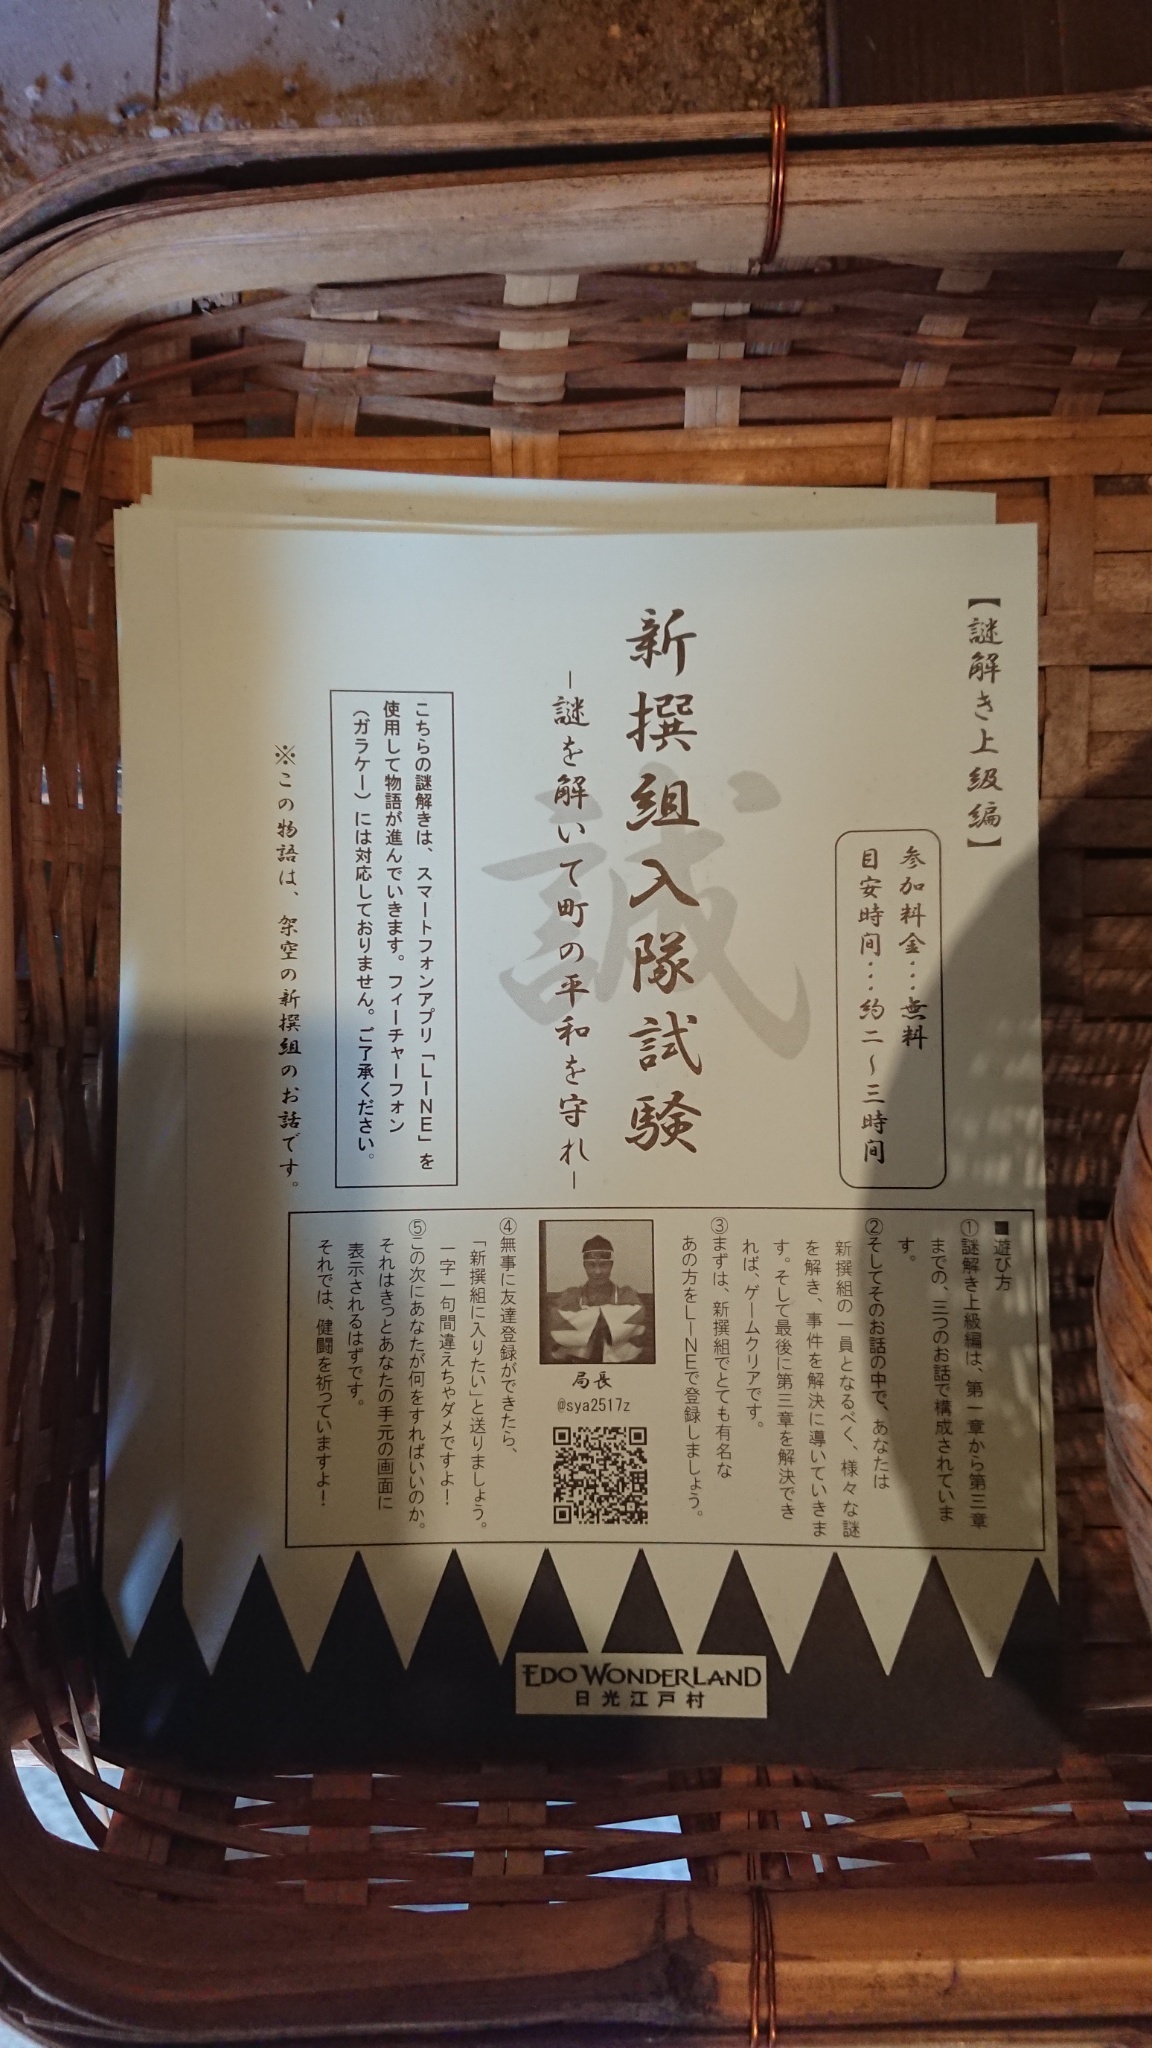 【謎解き上級編】
参加料金…無料
目安時間…約二~三時間
誠
新撰組入隊試験
-謎を解いて町の平和を守れ-
こちらの謎解きは、スマートフォンアプリ「LINE」を
使用して物語が進んでいきます。フィーチャーフォン
(ガラケー)には対応しておりません。ご了承ください。
※この物語は、架空の新撰組のお話です。
■遊び方
①謎解き上級編は、第一章から第三章
までの、三つのお話で構成されていま
す。
②そしてそのお話の中で、あなたは
新撰組の一員となるべく、様々な謎
を解き、事件を解決に導いていきま
す。そして最後に第三章を解決でき
れば、ゲームクリアです。
③まずは、新撰組でとても有名な
あの方をLINEで登録しましょう。
局長
@sya2517z
④無事に友達登録ができたら、
「新撰組に入りたい」と送りましょう。
一字一句間違えちゃダメですよ!
⑤この次にあなたが何をすればいいのか。
それはきっとあなたの手元の画面に
表示されるはずです。
それでは、健闘を祈っていますよ!
EDO WONDERLAND
日光江戸村